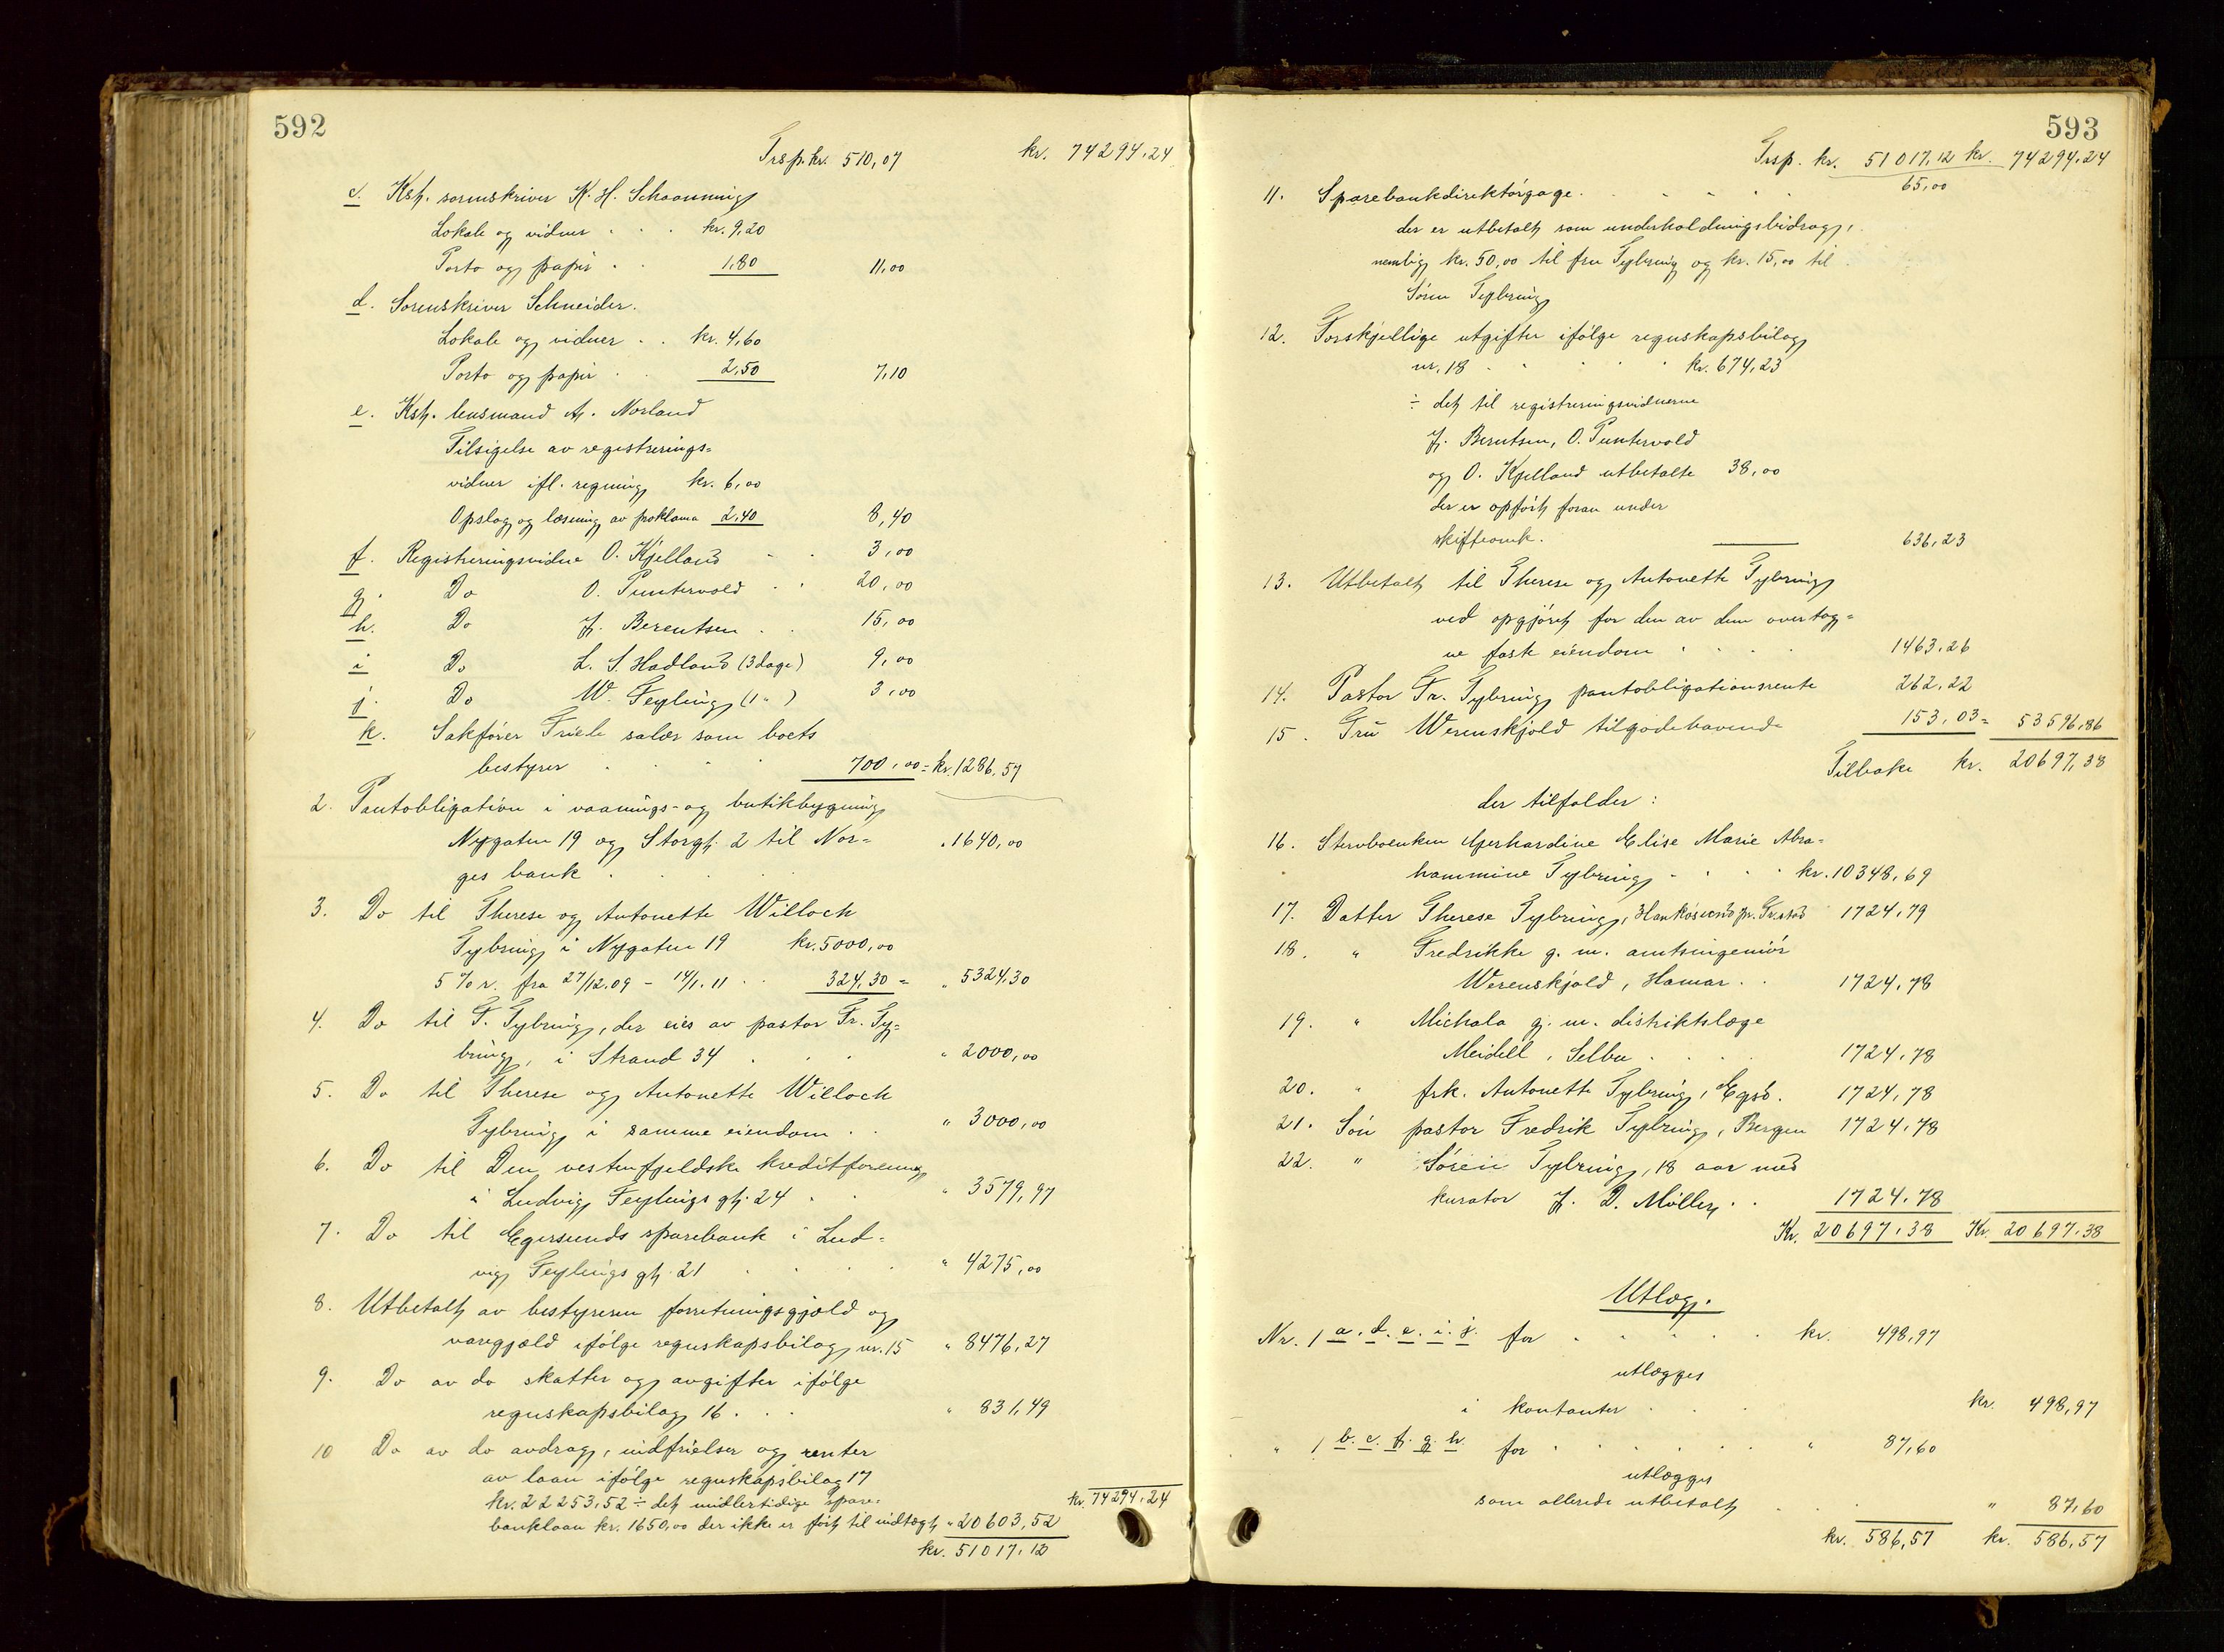 592
Trsp. kr. 510,07 kr. 74294,24
c. Kst. sorenskriver K. H. Schaanning
Lokale og vidner . . . kr. 9,20
Porto og papir . . 1,80 11,00
d. Sorenskriver Schneider.
Lokale og vidner . . kr. 4,60
Porto og papir . . 2,50 7,10
e. Kst. lensmand A. Norland
Tilsigelse av registrerings=
vidner ifl. regning kr. 6,00
Opslag og læsning av proklama 2,40 8,40
f. Registreringsvidne O. Kjelland . . 3,00
g. Do O. Puntervold . . 20,00
h. Do J. Berentsen . . 15,00
i Do L. S. Hadland (3 dage) 9,00
j. Do W. Feyling (1 " ) 3,00
k. Sakfører Friele salær som boets
bestyrer . . . . 700,00 = kr. 1286,57
2. Pantobligation i vaanings- og butikbygning
Nygaten 19 og Storgt. 2 til Nor= " 1640,00
ges bank . . . .
3. Do til Therese og Antonette Willoch
Tybring i Nygaten 19 kr. 5000,00
5 % r. fra 27/12.09 - 14/1.11 . . 324,30 = " 5324,30
4. Do til F. Tybring, der eies av pastor Fr. Ty=
bring, i Strand 34 . . . " 2000,00
5. Do til Therese og Antonette Willoch
Tybring i samme eiendom . . " 3000,00
6. Do til Den vestenfjeldske kreditforening
i Ludvig Feylings gt. 24 . . " 3579,97
7. Do til Egersunds sparebank i Lud=
vig Feylings gt. 21 . . . . " 4275,00
8. Utbetalt av bestyreren forretningsgjæld og
varegjæld ifølge regnskapsbilag nr. 15 " 8476,27
9. Do av do skatter og avgifter ifølge
regnskapsbilag 16 . . . " 831,49
10 Do av do avdrag, indfrielser og renter
av laan ifølge regnskapsbilag 17
kr. 22253,52 ÷ det midlertidige spare= kr. 74294,24
banklaan kr. 1650,00 der ikke er ført til indtægt " 20603,52
kr. 51017,12
593
Trsp. kr. 51017,12 kr. 74294,24
11. Sparebankdirektørgage . . . . . 65,00
der er utbetalt som underholdningsbidrag,
nemlig kr. 50,00 til fru Tybring og kr. 15,00 til
Søren Tybring
12. Forskjellige utgifter ifølge regnskapsbilag
nr. 18 . . . . . kr. 674,23
÷ det til registreringsvidnerne
J. Berentsen, O. Puntervold
og O. Kjelland utbetalte 38,00
der er opført foran under
skifteomk. 636,23
13. Utbetalt til Therese og Antonette Tybring
ved opgjøret for den av dem overtag=
ne faste eiendom . . . . 1463,26
14. Pastor Fr. Tybring pantobligationsrente 262,22
15. Fru Werenskjold tilgodehavende 153,03 = 53596,86
Tilbake kr. 20697,38
der tilfalder:
16. Stervboenken Gerhardine Elise Marie Abra=
hammine Tybring . . . . kr. 10348,69
17. Datter Therese Tybring, Hankøsund pr. Fr.stad 1724,79
18. " Fredrikke g. m. amtsingeniør
Werenskjold, Hamar . . 1724,78
19. " Michala g. m. distriktslæge
Meidell, Selbu . . . . 1724,78
20. " frk. Antonette Tybring, Egsd. 1724,78
21. Søn pastor Fredrik Tybring, Bergen 1724,78
22. " Søren Tybring, 18 aar med
kurator J. D. Møller . . 1724,78
Kr. 20697,38 Kr. 20697,38
Utlæg.
Nr. 1 a. d. e. i. j. for . . . . . kr. 498,97
utlægges
i kontanter . . . kr. 498,97
" 1 b. c. f. g. h. for . . . . . " 87,60
utlægges
som allerede utbetalt . . . " 87,60
kr. 586,57 kr. 586,57